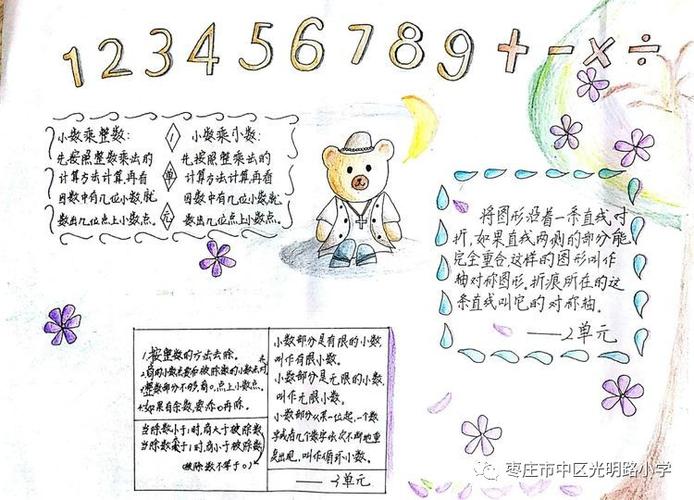 123456789+-×÷
小数乘整数:
先按照整数乘法的
计算方法计算,再看
因数中有几位小数,就
数出几位点上小数点。
1
单
元
小数乘小数:
先按照整数乘法的
计算方法计算,再看
因数中有几位小数,就
数出几位点上小数点。
将图形沿着一条直线对
折,如果直线两侧的部分能
完全重合,这样的图形叫作
轴对称图形。折痕所在的这
条直线叫它的对称轴。
——2单元
1.按整数的方法去除。
2.商的小数点要和被除数的小数点对齐
3.整数部分不够,商0,点上小数点。
4.如果有余数,要添0再除。
当除数小于1时,商大于被除数
当除数大于1时,商小于被除数
(被除数不等于0)
小数部分是有限的小数,
叫作有限小数。
小数部分是无限的小数,
叫作无限小数。
小数部分从某一位起,一个数
字或者几个数字依次不断地重
复出现,叫作循环小数。
——3单元
枣庄市中区光明路小学